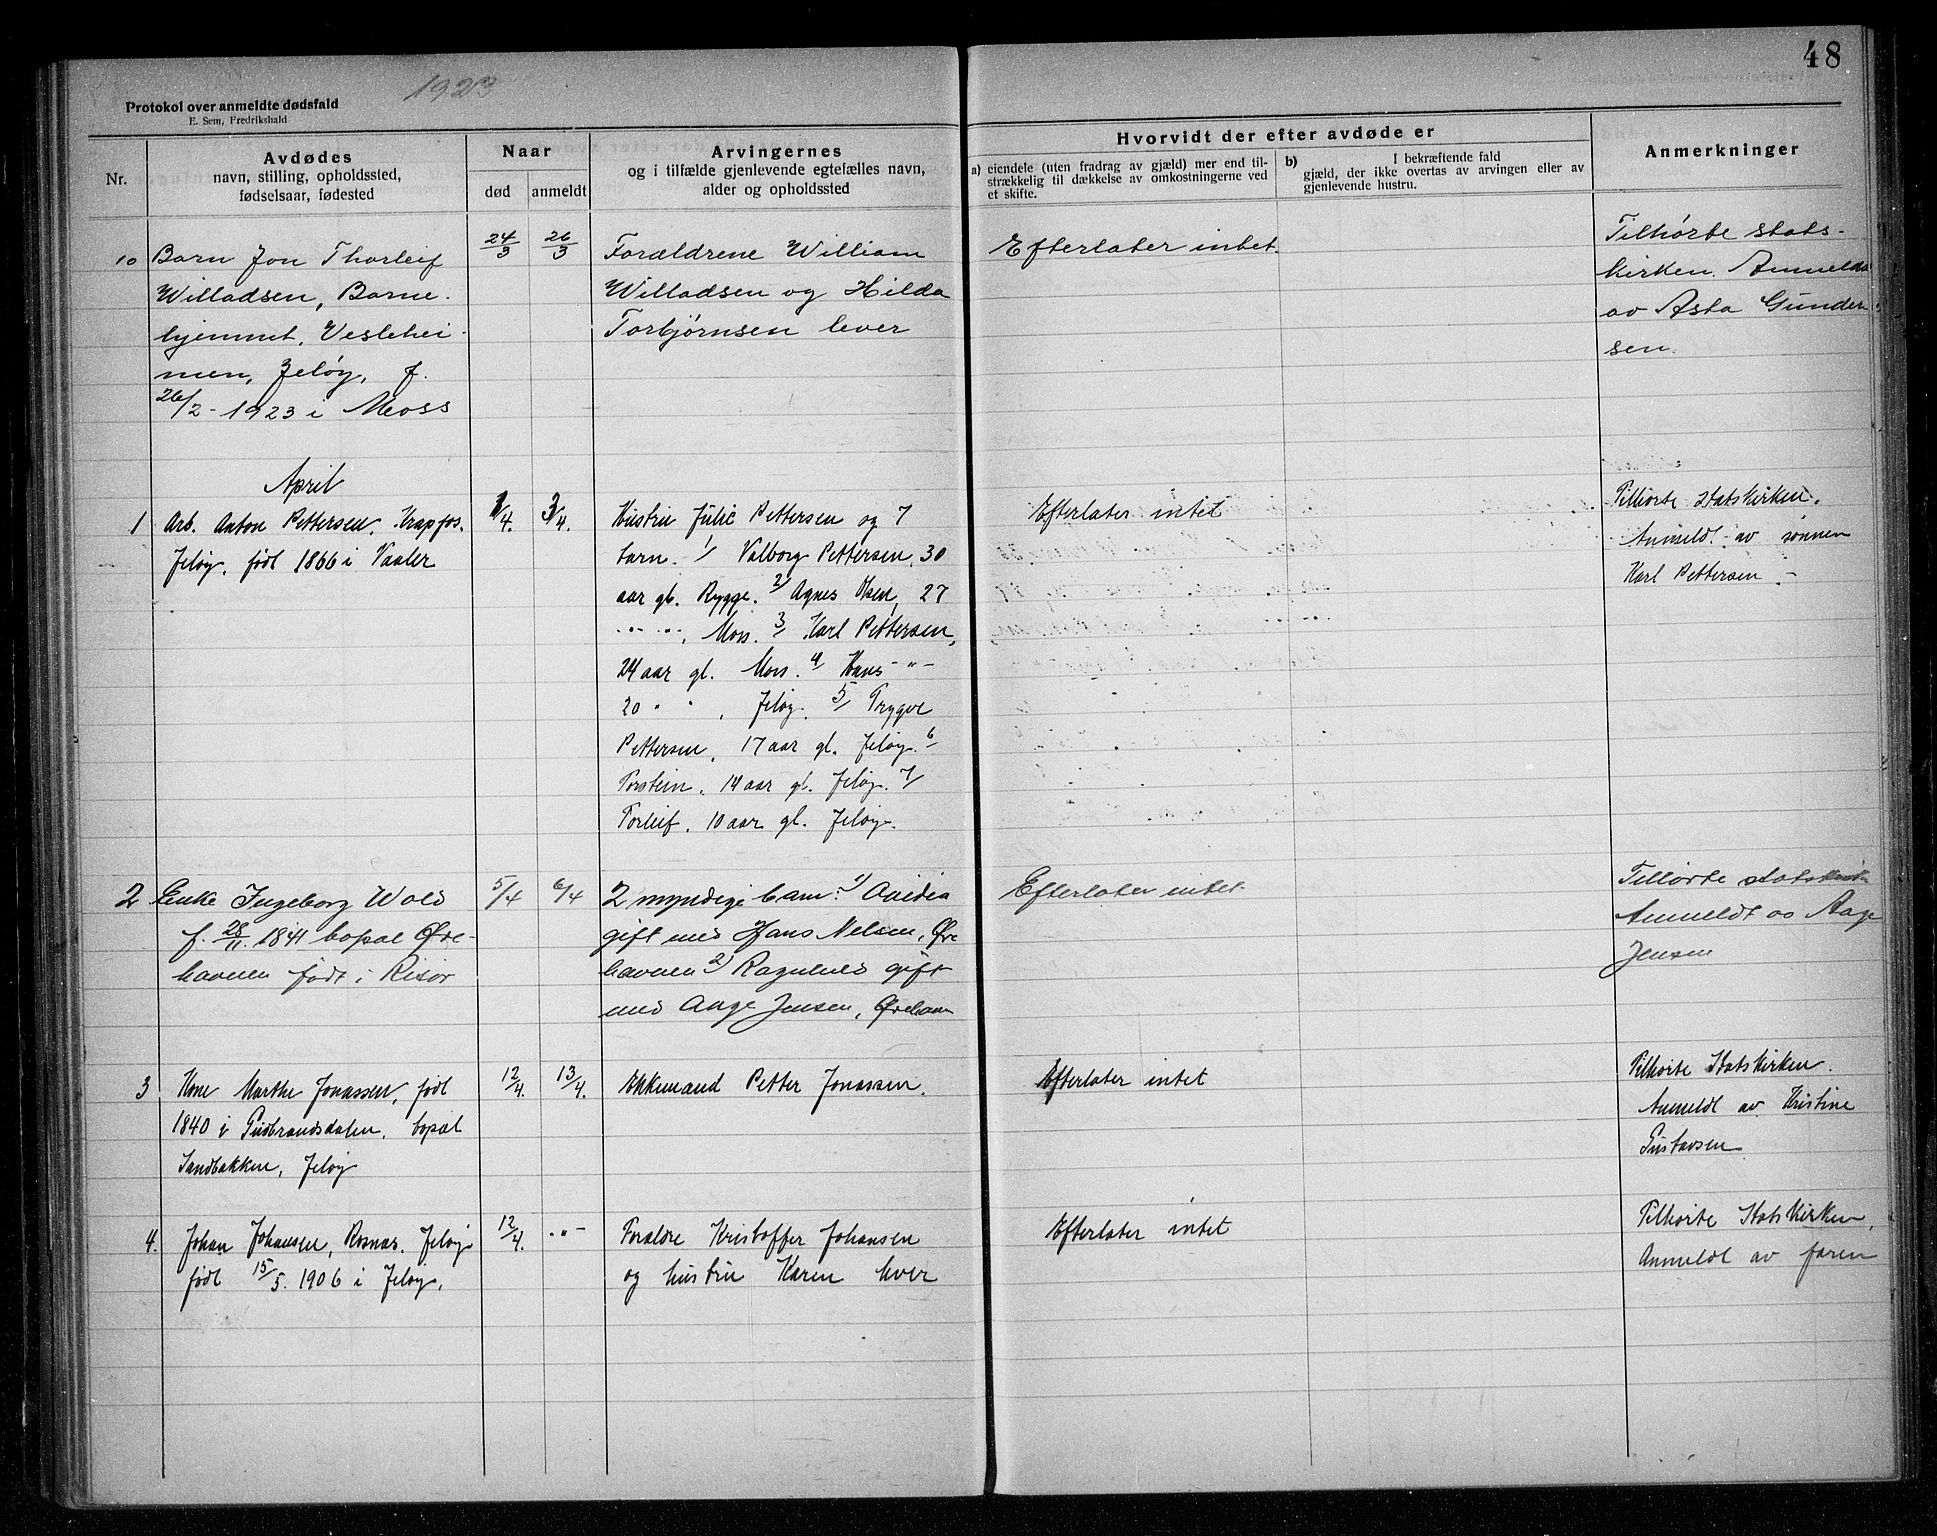 48
1923
Protokol over anmeldte dødsfald
E. Sem, Fredrikshald
Nr.
Avdødes
navn, stilling, opholdssted,
fødselsaar, fødested
Naar
død
anmeldt
Arvingernes
og i tilfælde gjenlevende egtefælles navn,
alder og opholdssted
Hvorvidt der efter avdøde er
a) eiendele (uten fradrag av gjæld) mer end til-
strækkelig til dækkelse av omkostningerne ved
et skifte.
b) I bekræftende fald
gjæld, der ikke overtas av arvingen eller av
gjenlevende hustru.
Anmerkninger
10
Barn Jon Thorleif
Willadsen, Barne-
hjemmet, Veslehei-
men, Jeløy, f.
26/2-1923 i Moss
24/3
26/3
Forældrene William
Willadsen og Hilda
Torbjørnsen lever
Efterlater intet.
Tilhørte stats-
kirken. Anmeldt
av Asta Gunder-
sen.
April
1
Arb. Anton Pettersen. Krapfos.
Jeløy. født 1866 i Vaaler
1/4.
3/4.
Hustru Julie Pettersen og 7
barn. 1/ Valborg Pettersen, 30
aar gl. Rygge. 2/ Agnes Olsen, 27
" ", Moss. 3/ Karl Pettersen,
24 aar gl. Moss. 4/ Hans -"-
20 " ", Jeløy. 5/ Trygve
Pettersen, 17 aar gl. Jeløy. 6/
Torstein, 14 aar gl. Jeløy. 7/
Torleif, 10 aar gl. Jeløy.
Efterlater intet
Tilhørte statskirken.
Anmeldt av sønnen
Karl Pettersen.-
2
Enke Ingeborg Wold
f. 28/11. 1841 bopæl Øre-
havnen født i Risør
5/4
6/4
2 myndige barn: 1)
gift med Hans Nelsen, Øre
havnen 2) Ragnhild gift
med Aage Jensen, Ørehavn
Efterlater intet
Tilhørte statskirk
Anmeldt av Aage
Jensen
3
Kone Marthe Jonassen, født
1840 i Gudbrandsdalen, bopæl
Sandbakken, Jeløy
12/4.
13/4.
Ekkemand Petter Jonassen.
Efterlater intet
Tilhørte Statskirken.
Anmeldt av Kristine
Gustavsen
4.
Johan Johansen, Rosnæs. Jeløy
født 15/5. 1906 i Jeløy.
12/4.
-"-
Foraldre Kristoffer Johansen
og hustru Karen lever
Efterlater intet
Tilhørte Statskirken,
Anmeldt av faren